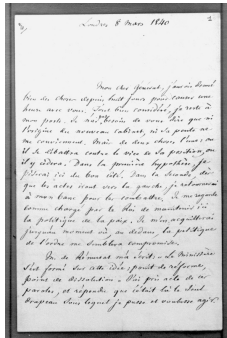 Londres 8 Mars 1840
Mon cher General, j'aurais donné
bien des choses depuis huit jours pour causer une
heure avec vous. Tout bien considéré, je reste à
mon poste. Je n'ai besoin de vous dire que ni
l'origine du nouveau cabinet, ni sa pente ne
me conviennent. Mais de deux choses l'une: ou
il se débattra contre le vice de sa position, ou
il y cédera. Dans la première hypothèse, je
l'aiderai ici du bon côté. Dans la seconde, dès
que les actes iront vers la gauche, je retournerai
à mon banc pour les combattre. Je me regarde
comme chargé par le Roi de maintenir ici
la politique de la paix. Je m'en acquitterai
jusqu'au moment où, au dedans, la politique
de l'ordre me semblera compromise.
M. de Rémusat m'a écrit: "Le Ministère
s'est formé sur cette idée; point de réforme,
point de dissolution. J'ai pris acte de ces
paroles, et répondu que c'était là le seul
drapeau sous lequel je pusse et voulusse agir.